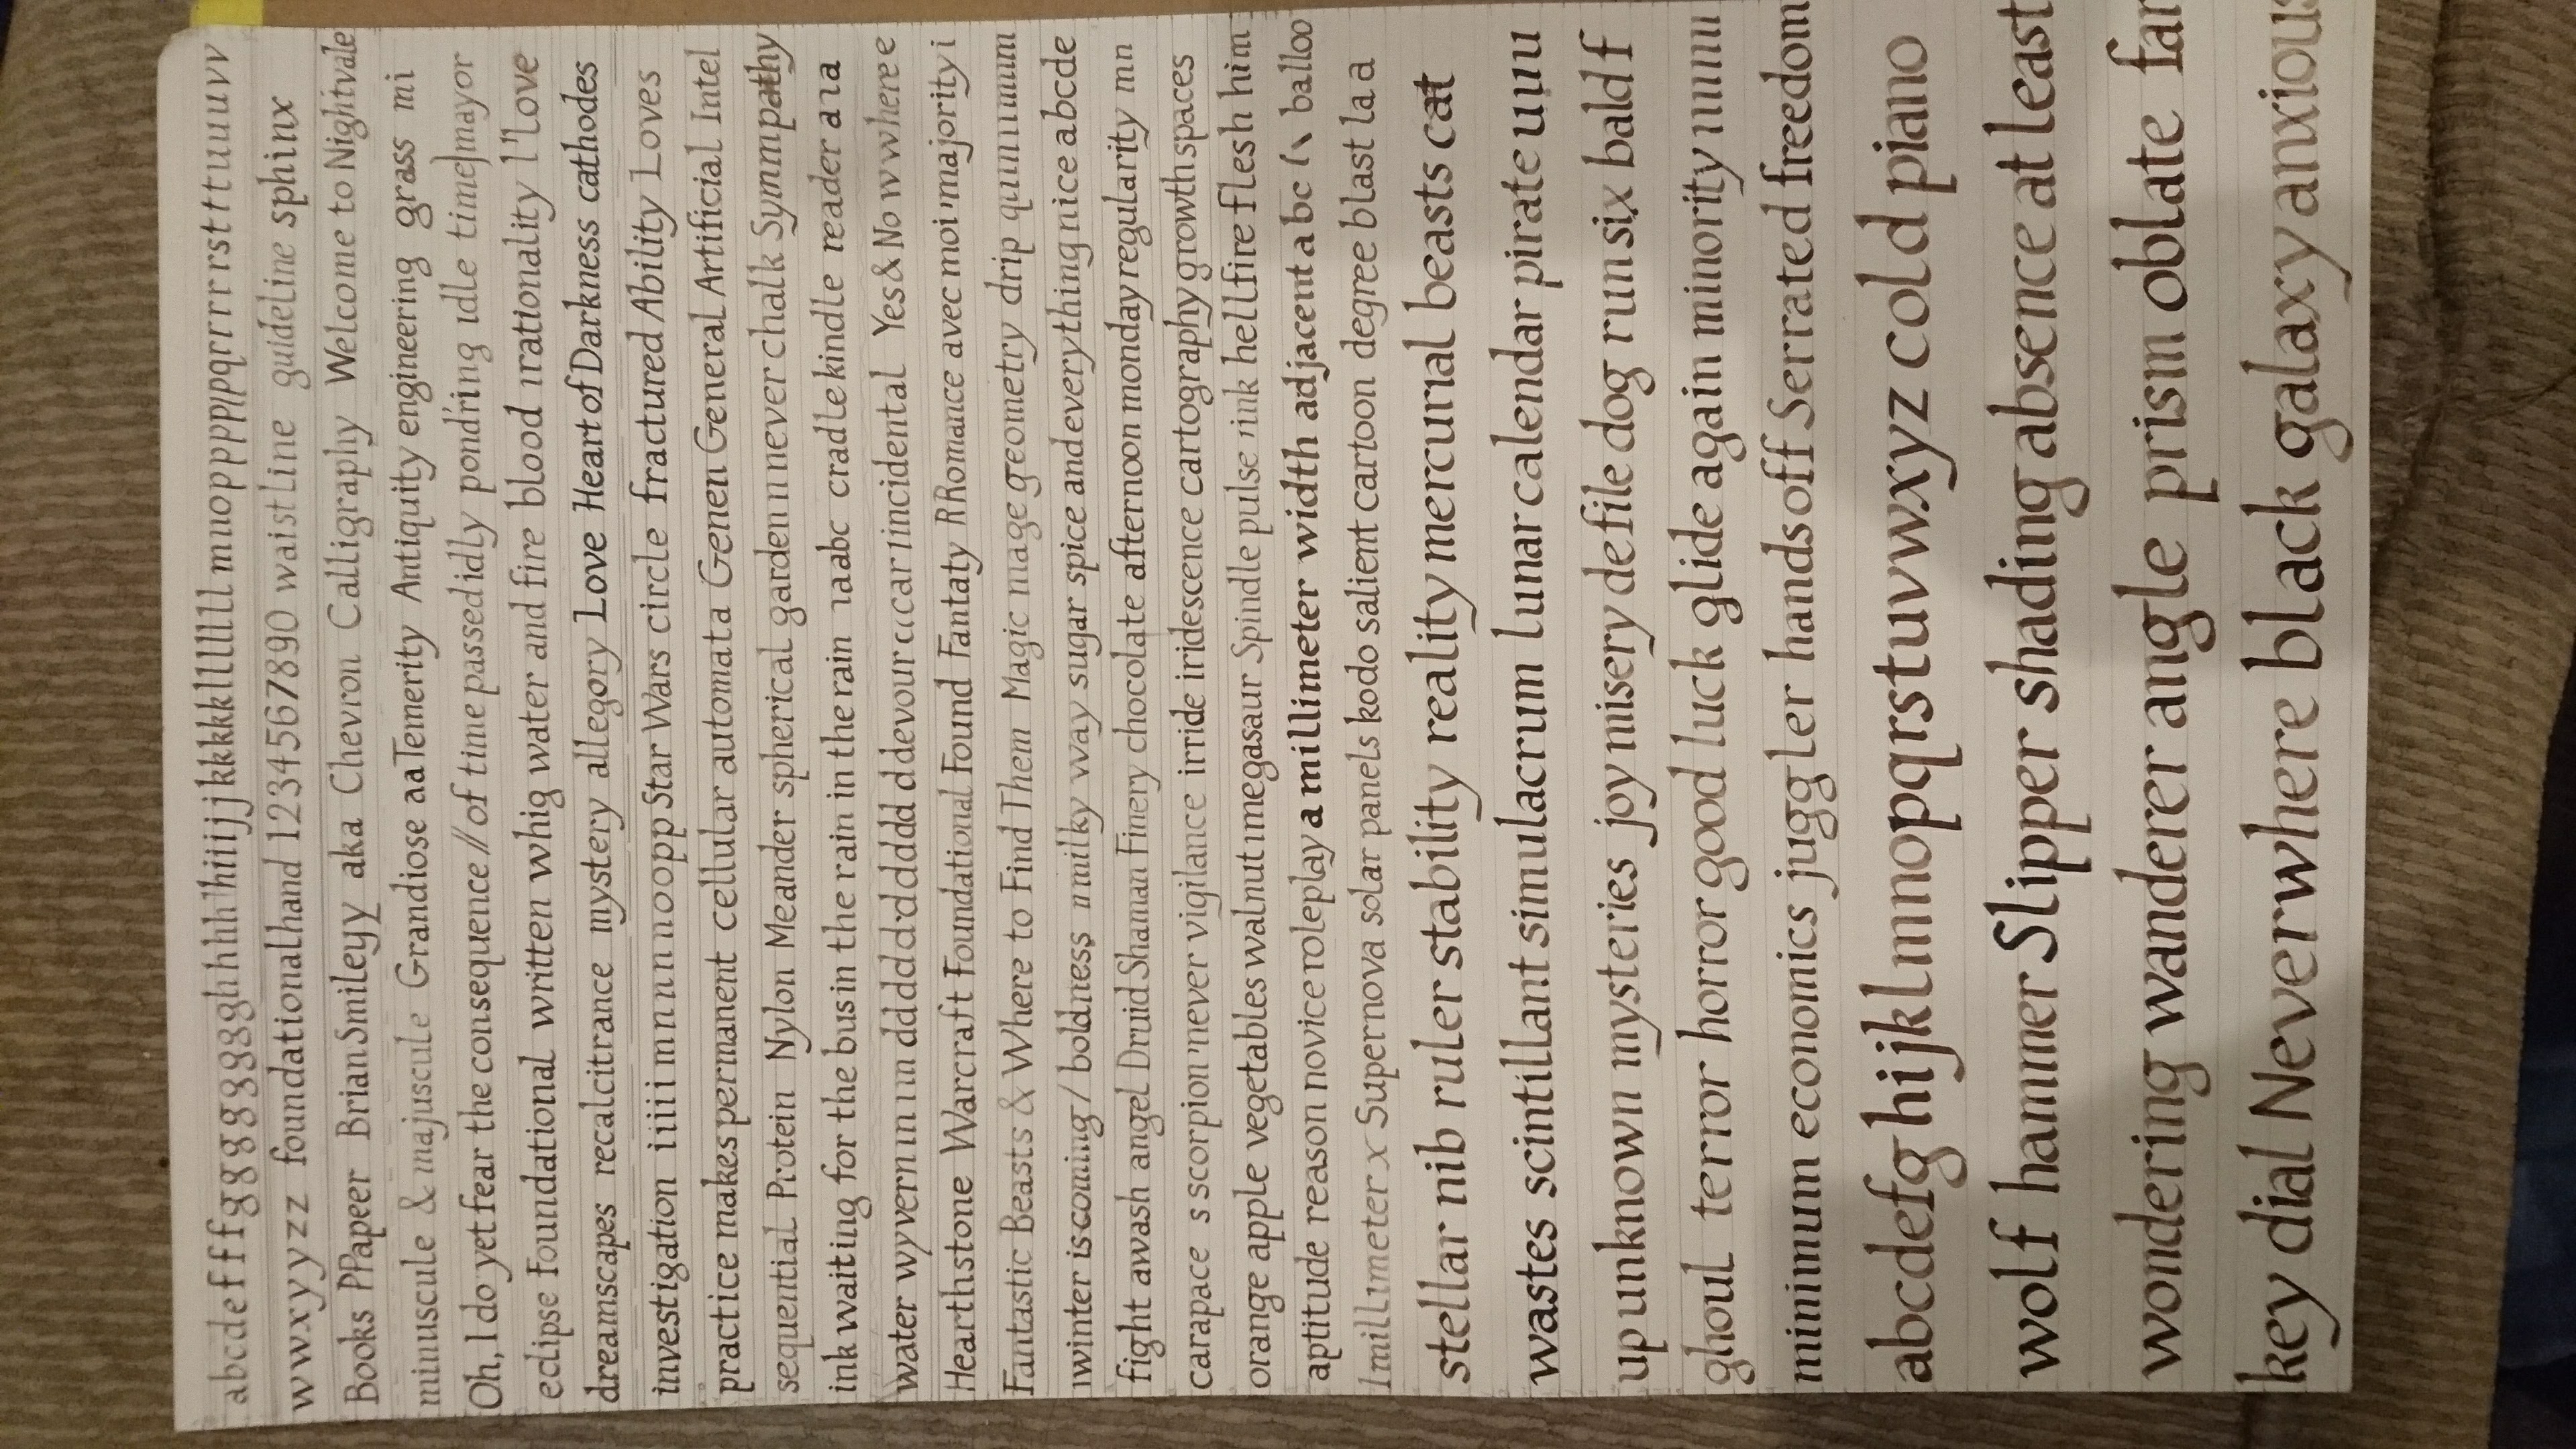 abcdefffggggggggghhhh hiiijjkkkkklllllll mnopppppppqrrrrrsttttuuuvv
wwxyyzz foundationalhand 1234567890 waistline guideline sphinx
Books PPapeer Brian Smileyy aka Chevron Calligraphy Welcome to Nightvale
minuscule & majuscule Grandiose aaTemerity Antiquity engineering grass mi
Oh, I do yet fear the consequence // of time passed idly pond'ring idle time]mayor
eclipse Foundational written whig water and fire blood irationality l"love
dreamscapes recalcitrance mystery allegory Love Heart of Darkness cathodes
investigation iiiii mnnnnoopp Star Wars circle fractured Ability Loves
practice makes permanent cellular automata Genen General Artificial Intel
sequential Protein Nylon Meander spherical garden n never chalk Symmpathy
ink waiting for the bus in the rain in the rain ıaabc cradle kindle reader aıa
water wyvern ın ıın ddddddddddd d devour cccar ıincidental Yes & No wwhere e
Hearthstone Warcraft Foundational Found Fantaty RRomance avec moi 'majority i
Fantastic Beasts & Where to Find Them Magic mage geometry drip
ıwinter is coming / boldness milky way sugar spice and everything nice abcde
fight awash angel Druid Shaman Finery chocolate afternoon monday regularity mn
carapace s scorpion 'never vigilance irride iridescence cartography growth spaces
orange apple vegetables walnut ımegasaur Spindle pulse ıink hellfire flesh him
aptitude reason novice roleplay a millimeter width adjacent a bc balloo
1millimeter x Supernova solar panels kodo salient cartoon degree blast la a
stellar nib ruler stability reality mercurial beasts cat
wastes scintillant simulacrum lunar calendar pirate uuu
up unknown mysteries joy misery defile dog run six bald f
ghoul terror horror good luck glide again minority
minimum economics juggler hands off Serrated freedom
abcdefghijklmnopqrstuvwxyz cold piano
wolf hammer Slipper shading absence at least
wondering wanderer angle prism oblate far
key dial Neverwhere black galaxy anxious